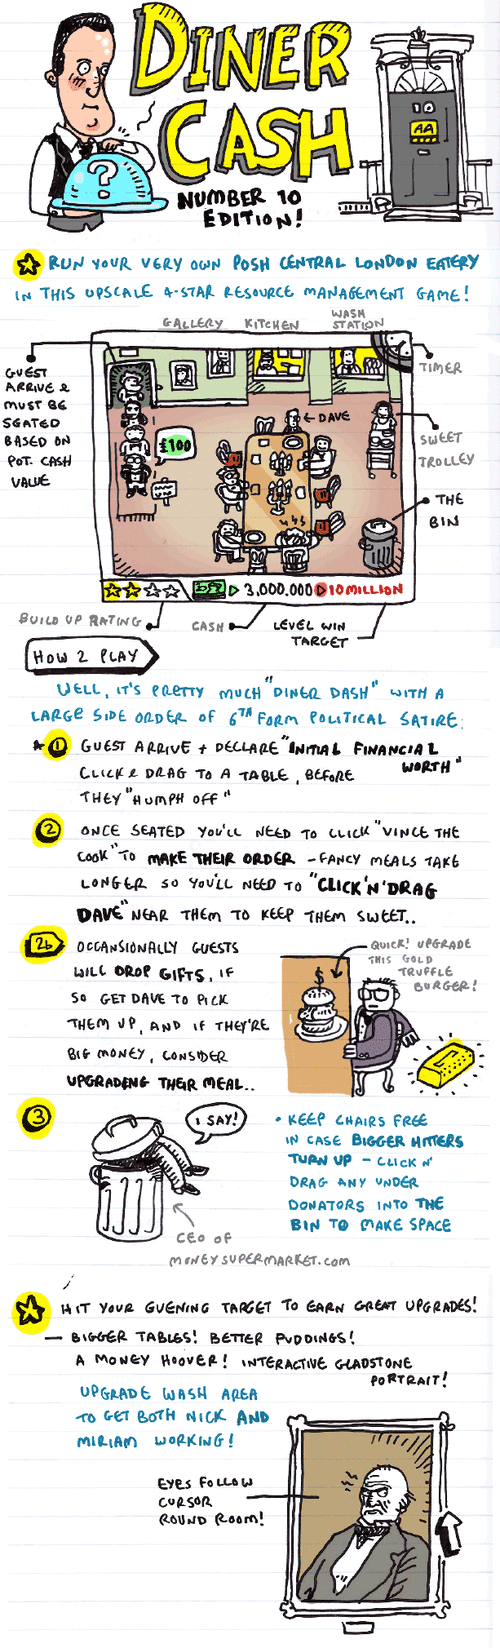 DINER
CASH
NUMBER 10
EDITION!
?
10
AA
RUN YOUR VERY OWN POSH CENTRAL LONDON EATERY
IN THIS UPSCALE 4-STAR RESOURCE MANAGEMENT GAME!
GALLERY
KITCHEN
WASH
STATION
TIMER
GUEST
ARRIVE &
MUST BE
SEATED
BASED ON
POT. CASH
VALUE
£100
← DAVE
SWEET
TROLLEY
THE
BIN
3,000,000
10 MILLION
BUILD UP RATING
CASH
LEVEL WIN
TARGET
HOW 2 PLAY
WELL, IT'S PRETTY MUCH "DINER DASH" WITH A
LARGE SIDE ORDER OF 6TH FORM POLITICAL SATIRE:
1 GUEST ARRIVE + DECLARE "INITIAL FINANCIAL
WORTH"
CLICK & DRAG TO A TABLE, BEFORE
THEY "HUMPH OFF"
2 ONCE SEATED YOU'LL NEED TO CLICK "VINCE THE
COOK" TO MAKE THEIR ORDER - FANCY MEALS TAKE
LONGER SO YOU'LL NEED TO "CLICK 'N' DRAG
DAVE" NEAR THEM TO KEEP THEM SWEET..
2b OCCANSIONALLY GUESTS
WILL DROP GIFTS, IF
SO GET DAVE TO PICK
THEM UP, AND IF THEY'RE
BIG MONEY, CONSIDER
UPGRADING THEIR MEAL..
QUICK! UPGRADE
THIS GOLD
TRUFFLE
BURGER!
$
3
I SAY!
CEO OF
MONEYSUPERMARKET.COM
• KEEP CHAIRS FREE
IN CASE BIGGER HITTERS
TURN UP - CLICK N'
DRAG ANY UNDER
DONATORS INTO THE
BIN TO MAKE SPACE
HIT YOUR EVENING TARGET TO EARN GREAT UPGRADES!
— BIGGER TABLES! BETTER PUDDINGS!
A MONEY HOOVER! INTERACTIVE GLADSTONE
PORTRAIT!
UPGRADE WASH AREA
TO GET BOTH NICK AND
MIRIAM WORKING!
EYES FOLLOW
CURSOR
ROUND ROOM!